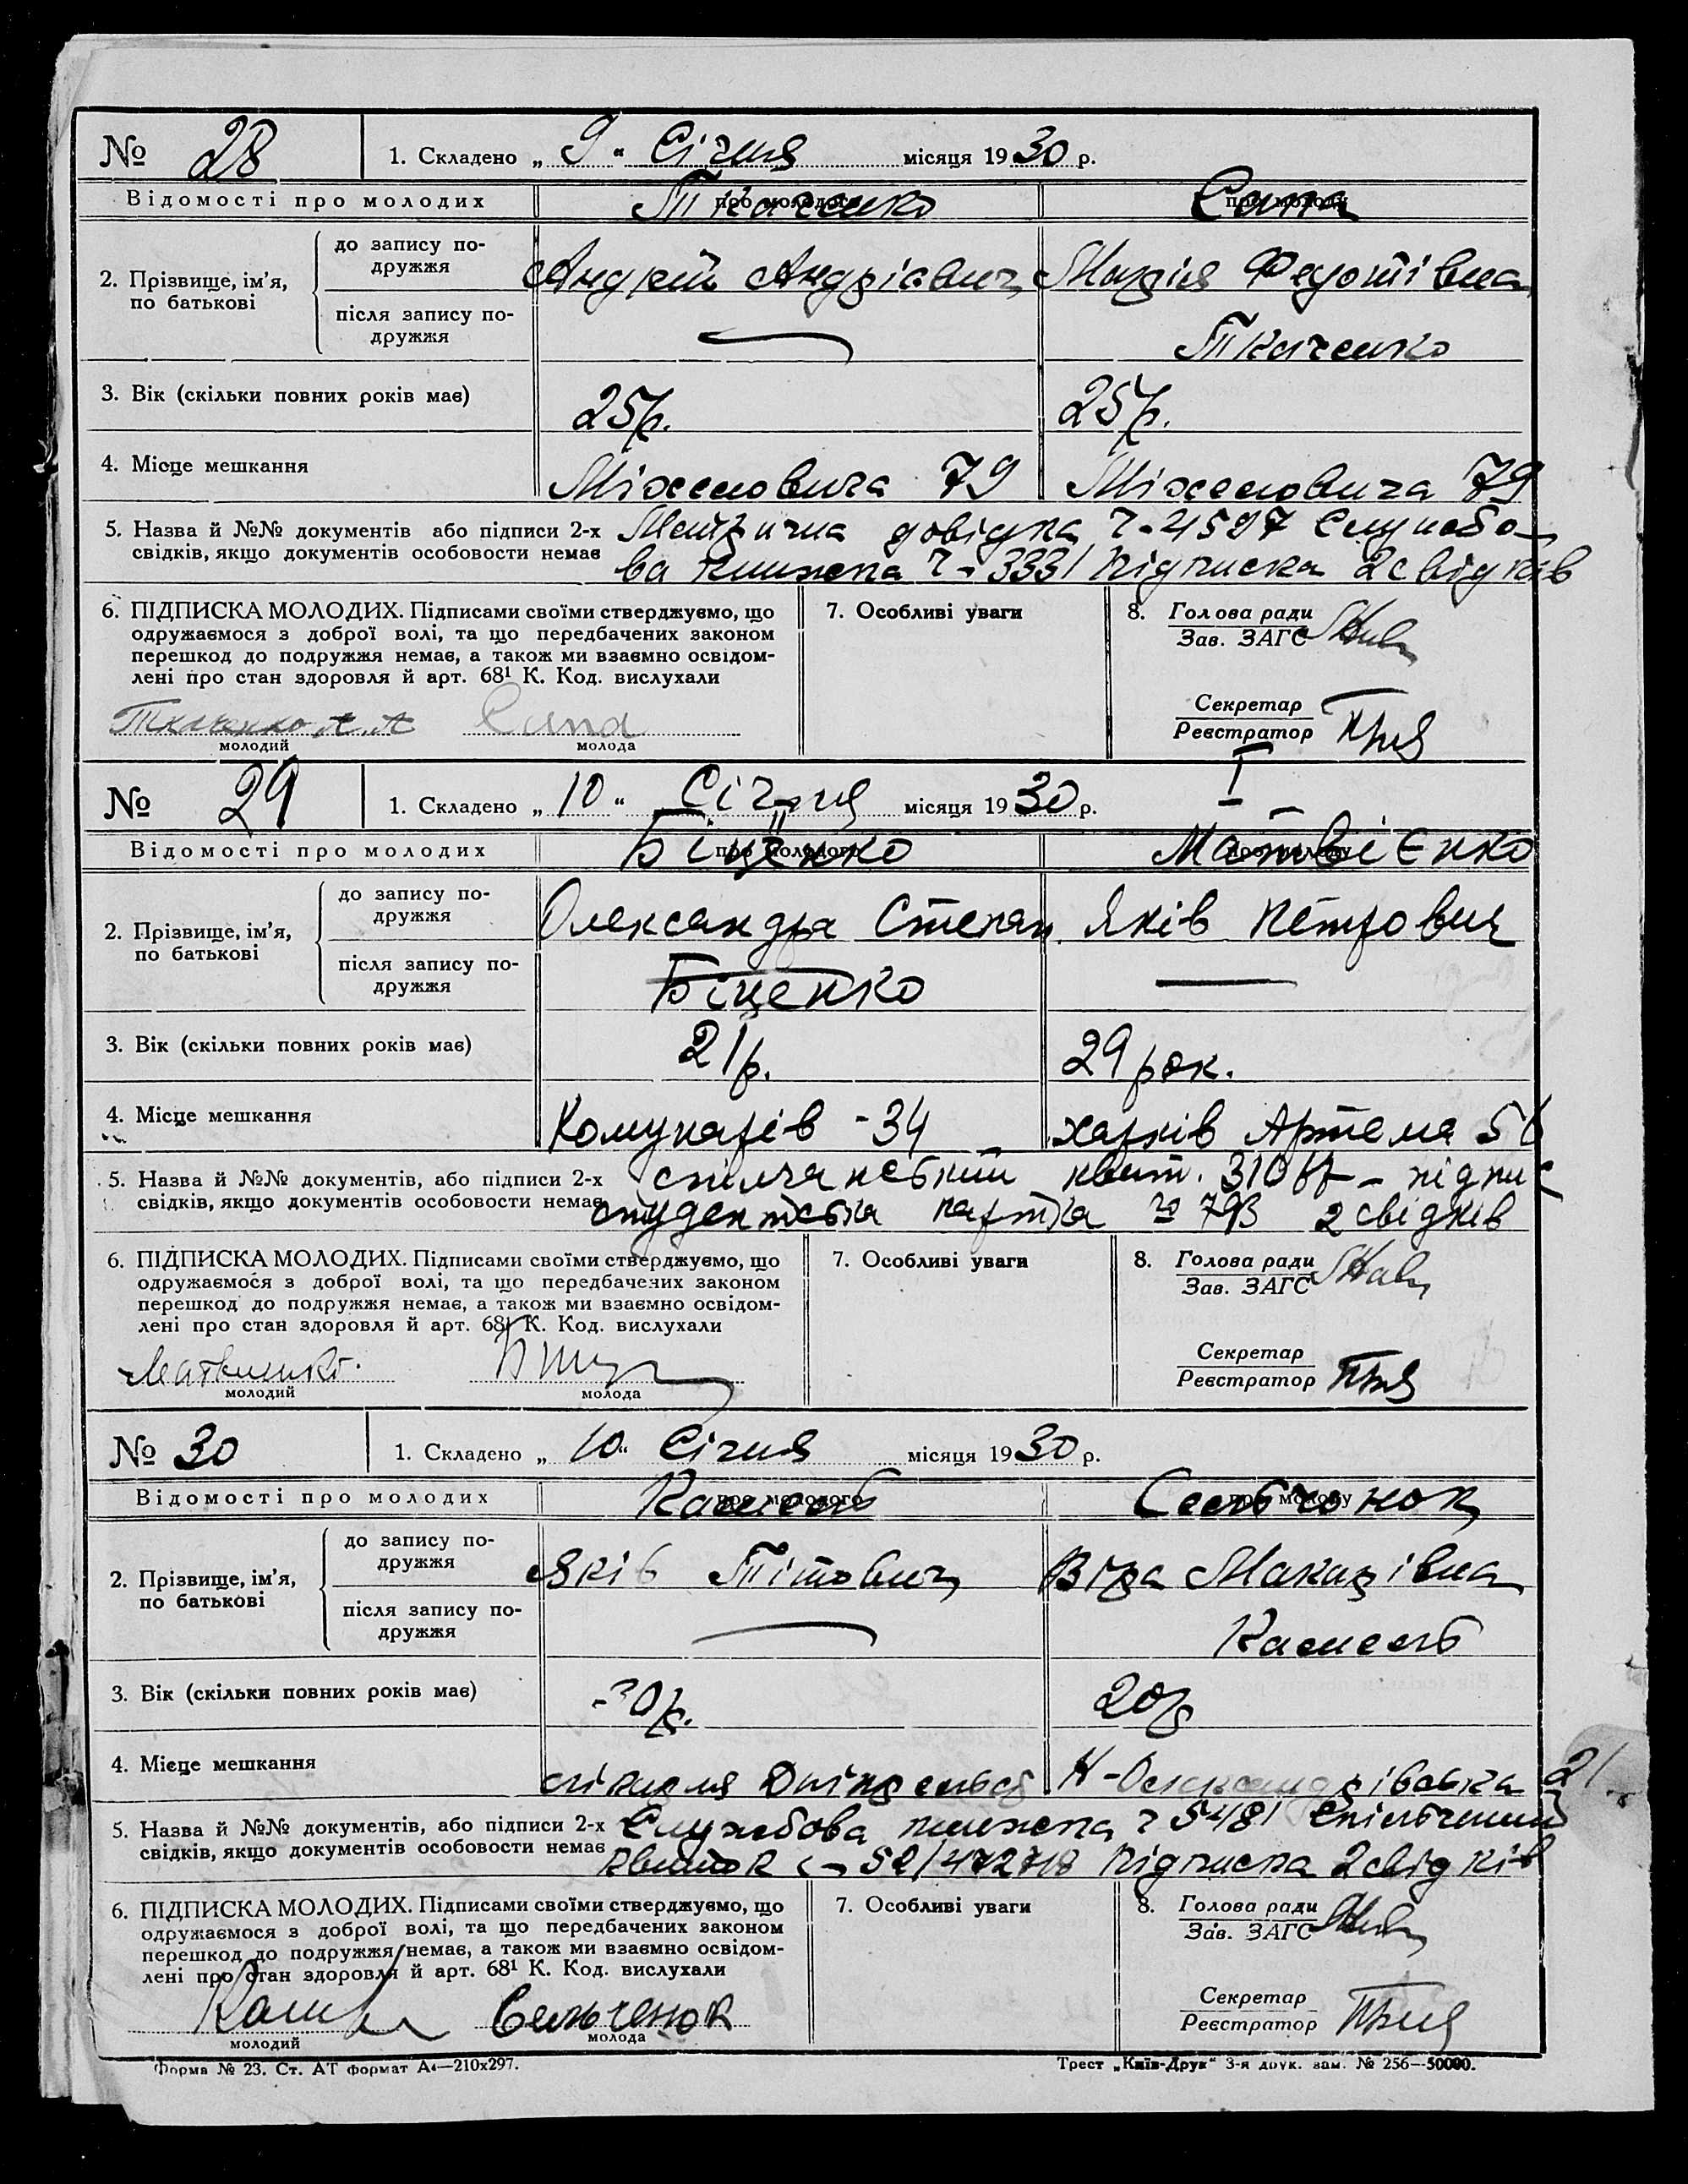 № 28 1. Складено „ 9 “ Січня місяця 1930 р.
Відомості про молодих про молодого Ткаченко про молоду Сапа
2. Прізвище, ім’я, по батькові
до запису по-
дружжя
Андрій Андрієвич Марія Федотівна
після запису по-
дружжя
Ткаченко
3. Вік (скільки повних років має) 25 р. 25 р.
4. Місце мешкання Міхеловича 79 Міхеловича 79
5. Назва й №№ документів або підписи 2-х Метрична довідка Ч-4597 Службо-
свідків, якщо документів особовости немає ва книжка Ч-3331 підписка 2 свідків
6. ПІДПИСКА МОЛОДИХ. Підписами своїми стверджуємо, що
одружаємося з доброї волі, та що передбачених законом
перешкод до подружжя немає, а також ми взаємно освідом-
лені про стан здоровля й арт. 68¹ К. Код. вислухали
Ткаченко А. А Сапа
молодий молода
7. Особливі уваги
8. Голова ради
Зав. ЗАГС
Секретар
Реєстратор
№ 29 1. Складено „ 10 “ Січня місяця 1930 р. I
II
Відомості про молодих про молодого Біценко про молоду Матвієнко
2. Прізвище, ім’я, по батькові
до запису по-
дружжя
Олександра Степан. Яків Петрович
після запису по-
дружжя
Біценко
3. Вік (скільки повних років має) 21 р. 29 рок.
4. Місце мешкання Комунарів -34 Харків Артема 56
5. Назва й №№ документів, або підписи 2-х спілчанський квит. підпис
свідків, якщо документів особовости немає студентська картка № 793 2 свідків
6. ПІДПИСКА МОЛОДИХ. Підписами своїми стверджуємо, що
одружаємося з доброї волі, та що передбачених законом
перешкод до подружжя немає, а також ми взаємно освідом-
лені про стан здоровля й арт. 68¹ К. Код. вислухали
молодий молода
7. Особливі уваги
8. Голова ради
Зав. ЗАГС
Секретар
Реєстратор
№ 30 1. Складено „ 10 “ Січня місяця 1930 р.
Відомості про молодих про молодого про молоду Сельчонок
2. Прізвище, ім’я, по батькові
до запису по-
дружжя
Яків Тітович Віра Макарівна
після запису по-
дружжя
3. Вік (скільки повних років має) 30 р. 20 р
4. Місце мешкання 21
5. Назва й №№ документів, або підписи 2-х Службова книжка Ч 5481 Спільчений
свідків, якщо документів особовости немає квиток підписка 2 свідків
6. ПІДПИСКА МОЛОДИХ. Підписами своїми стверджуємо, що
одружаємося з доброї волі, та що передбачених законом
перешкод до подружжя немає, а також ми взаємно освідом-
лені про стан здоровля й арт. 68¹ К. Код. вислухали
Сельченок
молодий молода
7. Особливі уваги
8. Голова ради
Зав. ЗАГС
Секретар
Реєстратор
Форма № 23. Ст. АТ формат А4—210х297. Трест „Київ-Друк“ 3-я друк. зам. № 256—50000.